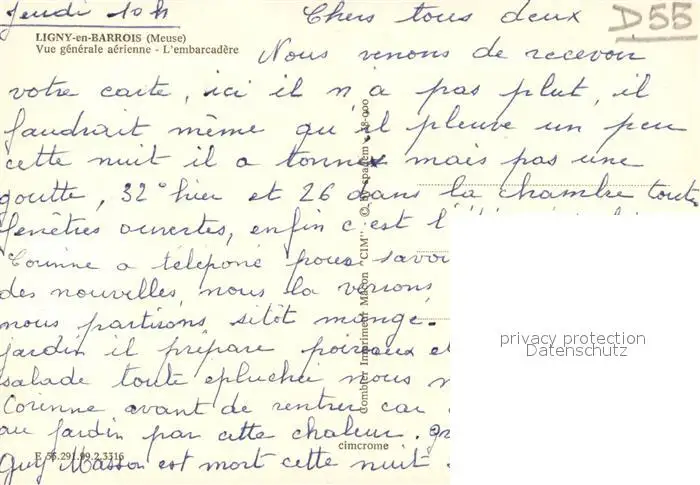 Jeudi 10 h
Chers tous deux
D55
LIGNY-en-BARROIS (Meuse)
Vue générale aérienne - L'embarcadère
Nous venons de recevoir
votre carte, ici il n'a pas plut, il
faudrait même qu'il pleuve un peu
cette nuit il a tonné mais pas une
goutte, 32° hier et 26 dans la chambre toute
fenêtres ouvertes, enfin c'est l
Corinne a télépone pour savoi
des nouvelles, nous la verrons,
nous partirons sitôt mangé.
jardin il prépare poireaux et
salade toute epluchée nous
Corinne avant de rentrer car
au jardin par cette chaleur.
Guy Masson est mort cette nuit.
E 55.291.99.2.3316
cimcrome
Combier Imprimeur Mâcon "CIM"
privacy protection
Datenschutz